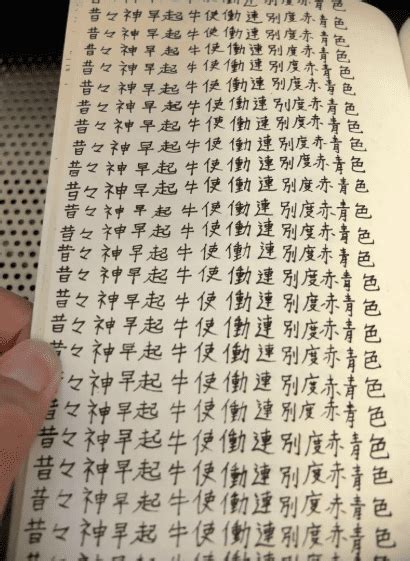 昔々神早起牛使働連別度赤青色
昔々神早起牛使働連別度赤青色
昔々神早起牛使働連別度赤青色
昔々神早起牛使働連別度赤青色
昔々神早起牛使働連別度赤青色
昔々神早起牛使働連別度赤青色
昔々神早起牛使働連別度赤青色
昔々神早起牛使働連別度赤青色
昔々神早起牛使働連別度赤青色
昔々神早起牛使働連別度赤青色
昔々神早起牛使働連別度赤青色
昔々神早起牛使働連別度赤青色
昔々神早起牛使働連別度赤青色
昔々神早起牛使働連別度赤青色
昔々神早起牛使働連別度赤青色
昔々神早起牛使働連別度赤青色
昔々神早起牛使働連別度赤青色
昔々神早起牛使働連別度赤青色
昔々神早起牛使働連別度赤青色
昔々神早起牛使働連別度赤青色
昔々神早起牛使働連別度赤青色
昔々神早起牛使働連別度赤青色
昔々神早起牛使働連別度赤青色